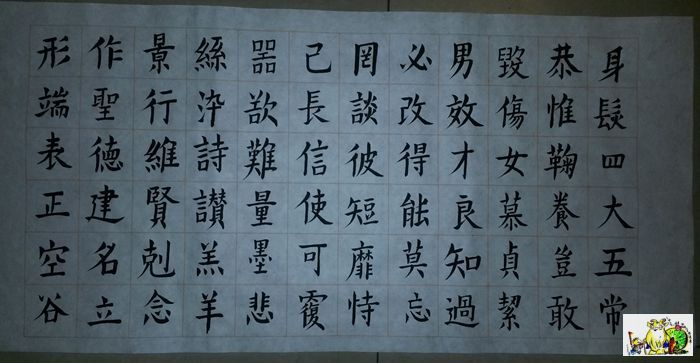 身髮四大五常
恭惟鞠養豈敢
毀傷女慕貞絜
男效才良知過
必改得能莫忘
罔談彼短靡恃
己長信使可覆
器欲難量墨悲
絲染詩讚羔羊
景行維賢剋念
作聖德建名立
形端表正空谷